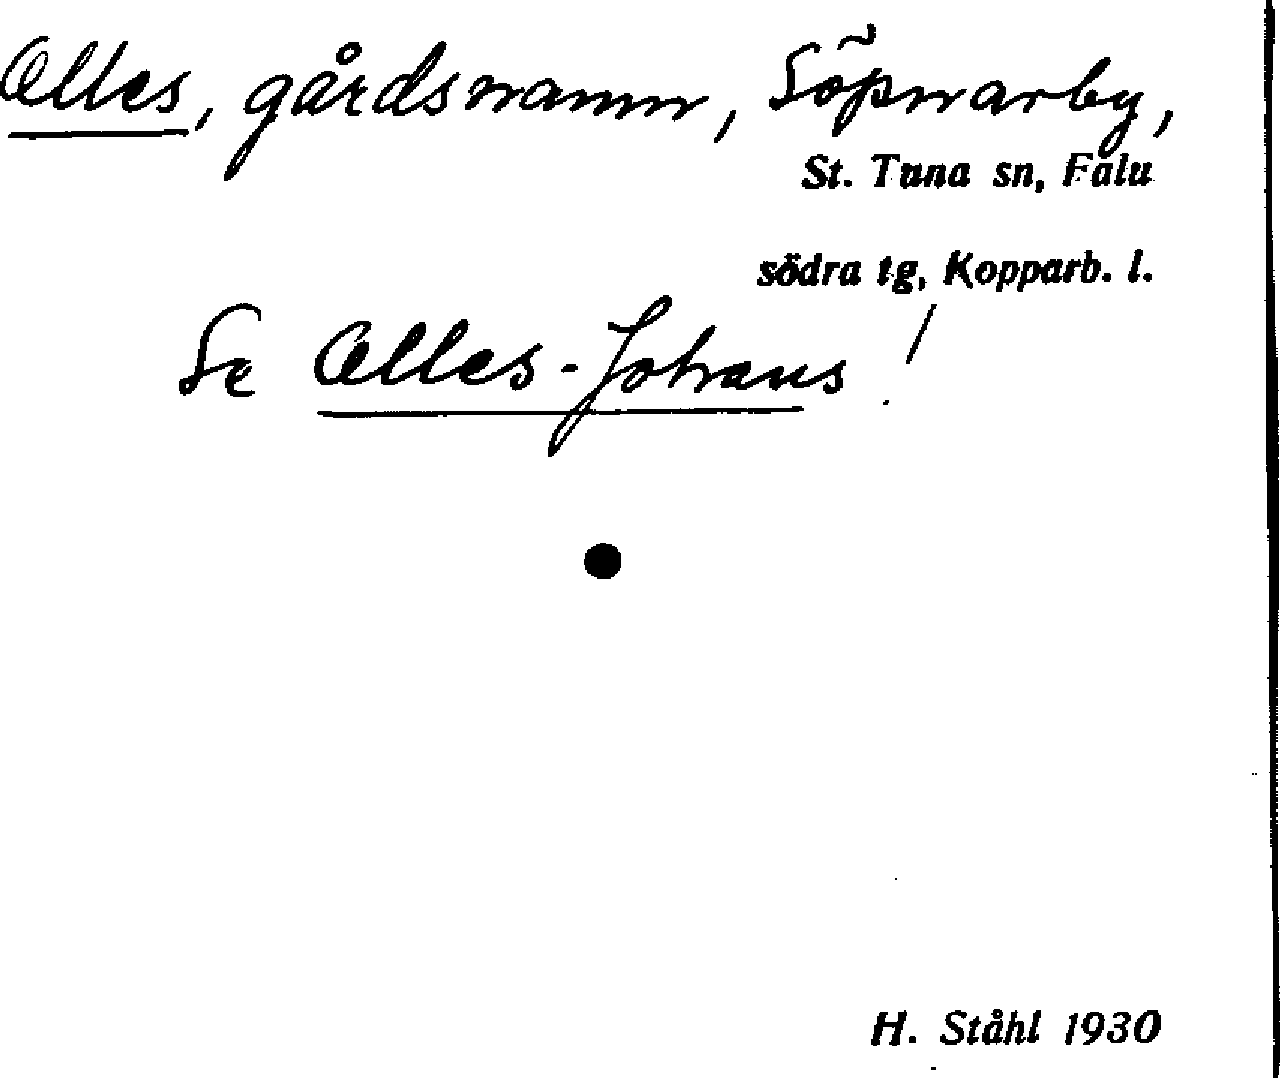 Olles, gårdsnamn, Söpnarby,
St. Tuna sn, Falu
södra tg, Kopparb. l.
Se Olles-Johans !
H. Ståhl 1930